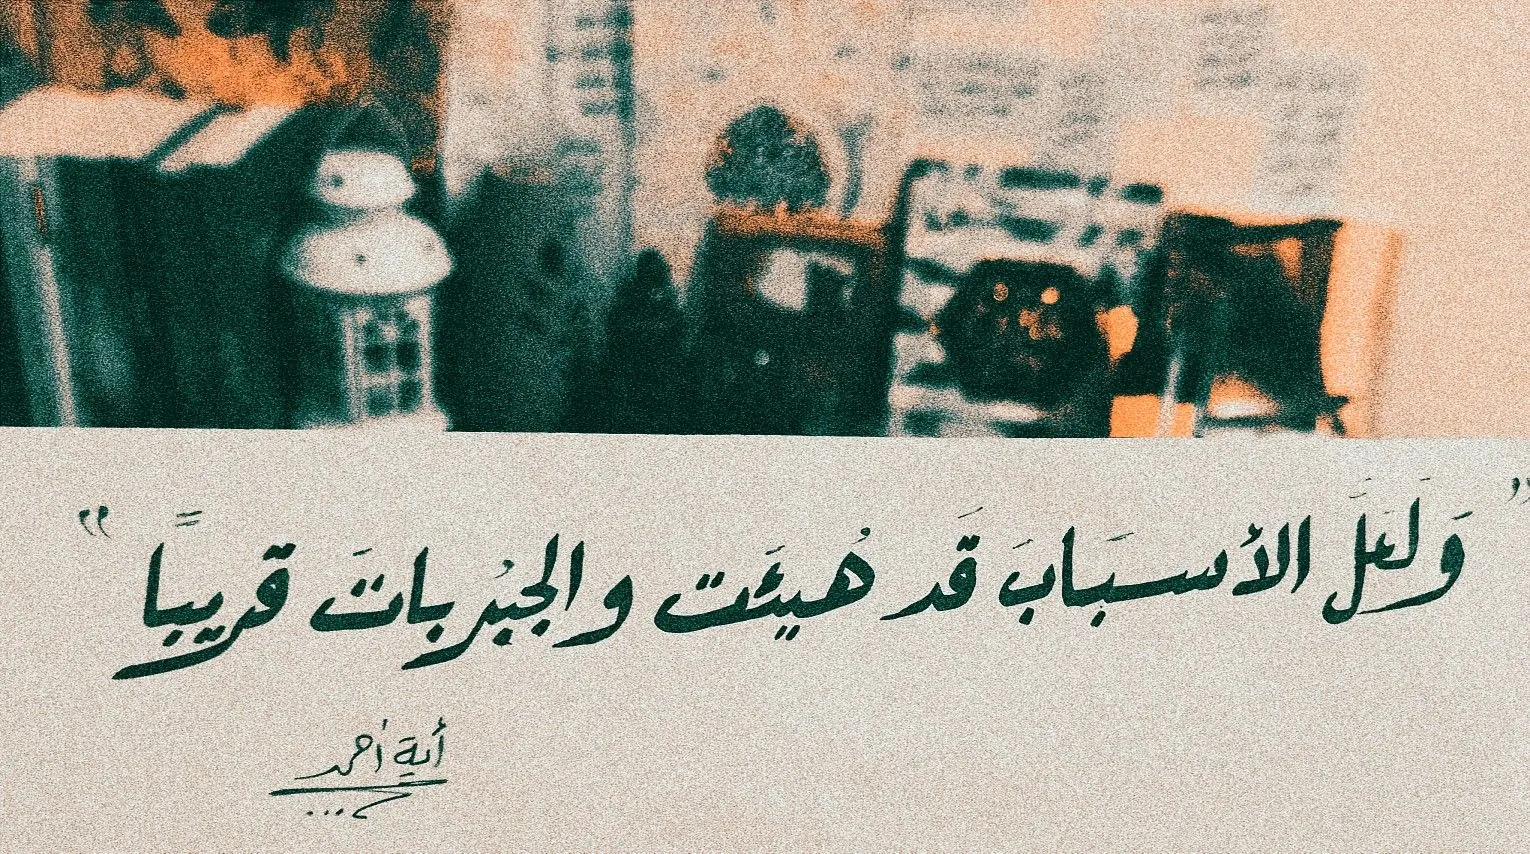 " وَلَعلَّ الأسبَابَ قَد هُيئَت والجبْر باتَ قريباً "
أية أحمد